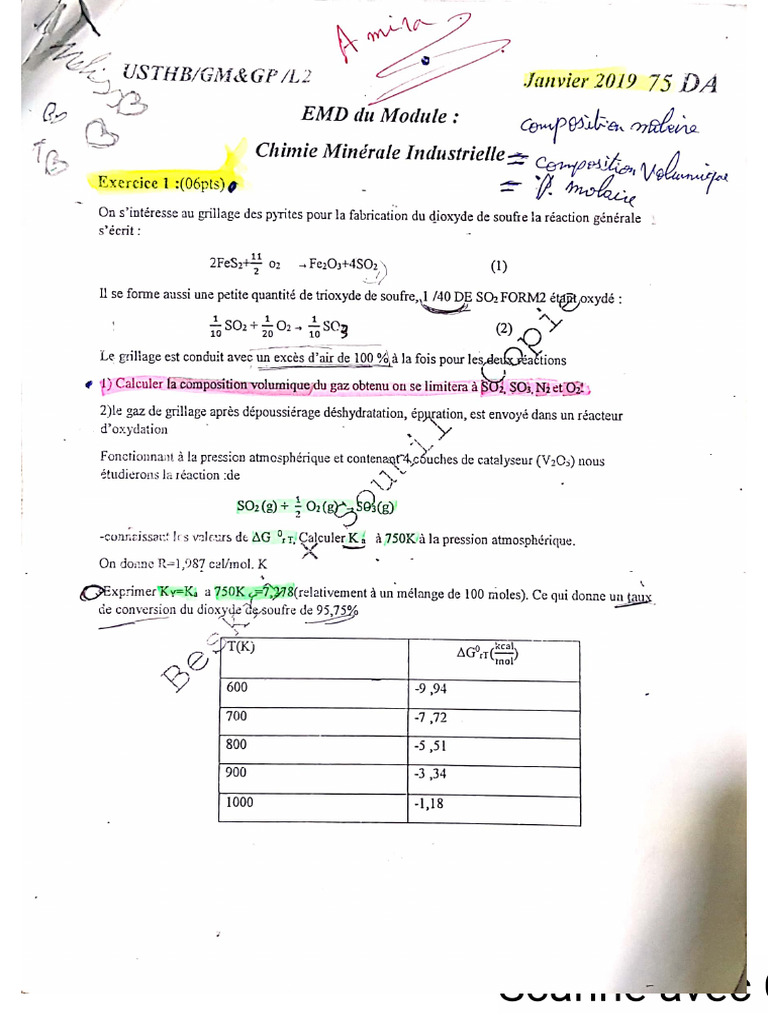 Amira
USTHB/GM&GP/L2
Janvier 2019 75 DA
EMD du Module :
composition molaire
Chimie Minérale Industrielle
= composition Volumique
= P. molaire
Exercice 1 :(06pts)
On s'intéresse au grillage des pyrites pour la fabrication du dioxyde de soufre la réaction générale
s'écrit :
2FeS2+11/2 o2 →Fe2O3+4SO2 (1)
Il se forme aussi une petite quantité de trioxyde de soufre, 1 /40 DE SO2 FORM2 étant oxydé :
1/10 SO2 + 1/20 O2 → 1/10 SO3 (2)
Le grillage est conduit avec un excès d'air de 100 % à la fois pour les deux réactions
1) Calculer la composition volumique du gaz obtenu on se limitera à SO2, SO3, N2 et O2!
2)le gaz de grillage après dépoussiérage déshydratation, épuration, est envoyé dans un réacteur
d'oxydation
Fonctionnant à la pression atmosphérique et contenant 4 couches de catalyseur (V2O5) nous
étudierons la réaction :de
SO2 (g) + 1/2 O2 (g) → SO3(g)
-connaissant les valeurs de ΔG 0rT, Calculer Ka à 750K à la pression atmosphérique.
On donne R=1,987 cal/mol. K
Exprimer KY=Ka a 750K =7,378(relativement à un mélange de 100 moles). Ce qui donne un taux
de conversion du dioxyde de soufre de 95,75%
T(K) ΔG0rT(kcal/mol)
600 -9 ,94
700 -7 ,72
800 -5 ,51
900 -3 ,34
1000 -1,18
Copie
Sounil
X
Besk